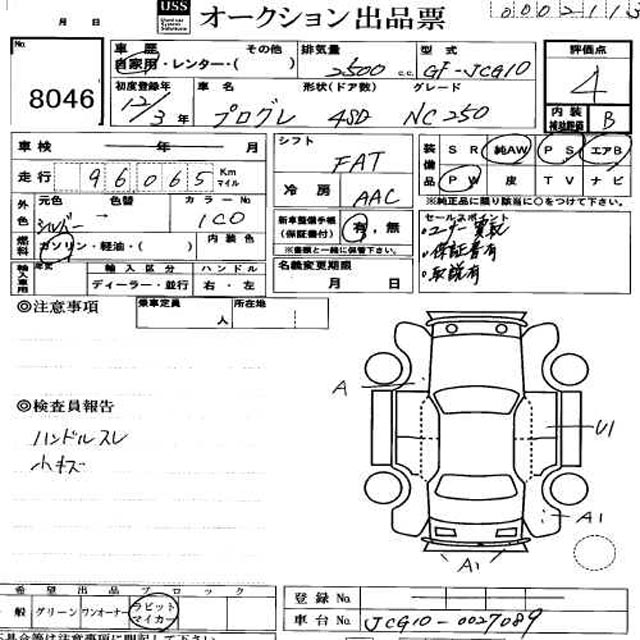 月 日 USS オークション出品票 0002113
No. 8046
車歴 その他 排気量 型式 評価点
自家用・レンター・( ) 2500 c.c. GF-JCG10 4
初度登録年 車名 形状(ドア数) グレード
12/3年 プログレ 4SD NC250
内装補助評価 B
車検 年 月
走行 96065 Km マイル
外色 元色 色替 カラーNo
シルバー → 1C0
燃料 ガソリン・軽油・( ) 内装色
輸入車用 年式 輸入区分 ハンドル
ディーラー・並行 右・左
シフト FAT
冷房 AAC
新車整備手帳(保証書付) 有・無
※書類と一緒に保管下さい。
名義変更期限
月 日
装備品 SR 純AW PS エアB
PW 皮 TV ナビ
※純正品に限り該当に○をつけて下さい。
セールスポイント
・ユーザー買取
・保証書有
・取説有
◎注意事項 乗車定員 人 所在地
◎検査員報告
ハンドルスレ
小キズ
A
U1
A1
A1
希望出品ブロック
一般 グリーン ワンオーナー ラビットマイカー
登録No.
車台No. JCG10-0027089